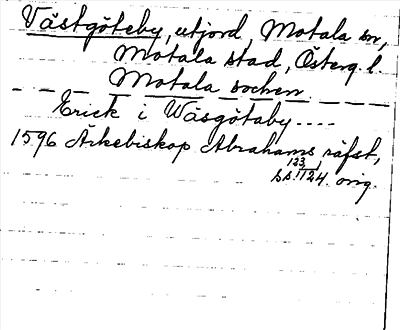 Västgöteby, utjord, Motala sn,
Motala stad, Österg. l.
Motala socken.
Erick i Wäsgötaby ....
1596 Ärkebiskop Abrahams räfst,
123,
ss. 124. orig.